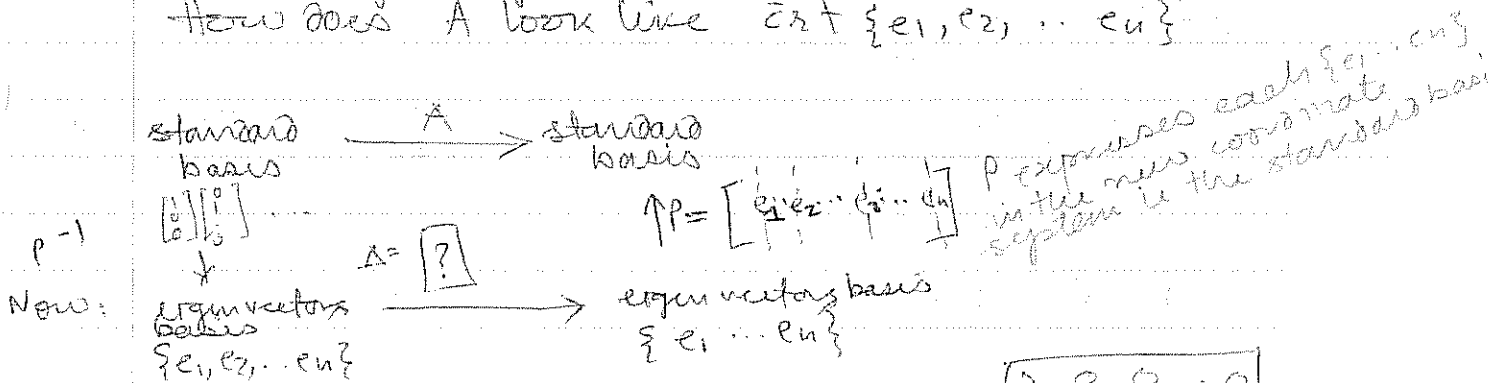 How does A look like wrt {e1, e2, .. en}
standard basis A → standard basis
[1 0 0] [0 1 0] ....
↑P = [e1 e2 .. ei .. en]
P expresses each {e1 ... en}
in the new coordinate
system i the standard basi
P -1
Λ = [?]
Now: eigenvectors basis → eigenvectors basis
{e1, e2, .. en} {e1 ... en}